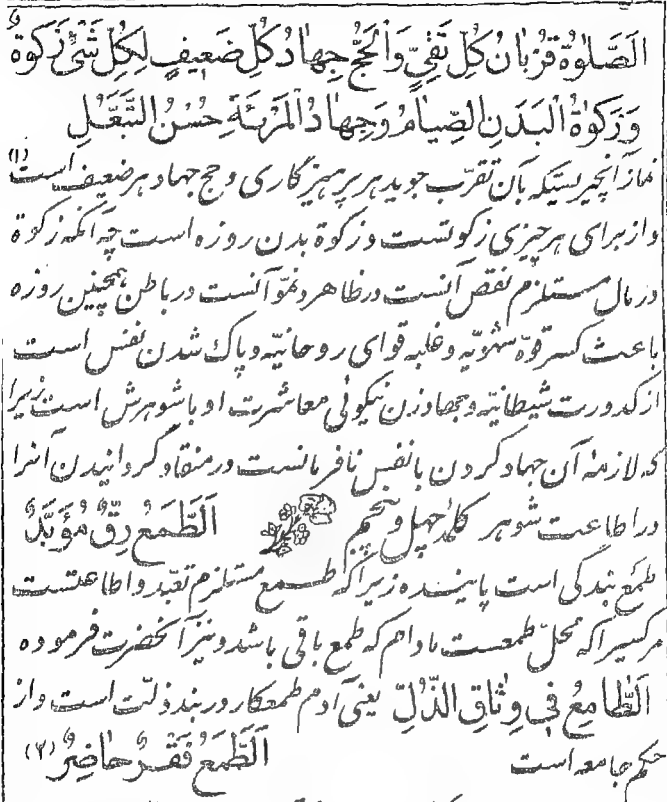 اَلصَّلٰوةُ قُرْبٰانُ كُلِّ تَقِيٍّ وَالْحَجُّ جِهٰادُ كُلِّ ضَعيفٍ لِكُلِّ شَيْءٍ زَكٰوةٌ
وَزَكٰوةُ الْبَدَنِ الصِّيٰامُ وَجِهٰادُ الْمَرْئَةِ حُسْنُ التَّبَعُّلِ
نماز آنچیزیستکه بآن تقرّب جوید هر پرهیزگاری و حج جهاد هر ضعیف است (۱)
و از برای هر چیزی زکوتست و زکوة بدن روزه است چه آنکه زکوة
در مال مستلزم نقص آنست در ظاهر و نموّ آنست در باطن همچنین روزه
باعث کسر قوّه شهویّه و غلبه قوای روحانیّه و پاک شدن نفس است
از کدورت شیطانیّه و جهاد زن نیکوئی معاشرت او با شوهرش است زیرا
که لازمهٔ آن جهاد کردن با نفس نافرمانست و در منقاد گردانیدن آنرا
در اطاعت شوهر کلمهٔ چهل و پنجم اَلطَّمَعُ رِقٌّ مُؤَبَّدٌ
طمع بندگی است پاینده زیرا که طمع مستلزم تعبّد و اطاعتست
مر کسیرا که محلّ طمعست مادام که طمع باقی باشد و نیز آنحضرت فرموده
اَلطّٰامِعُ فى وِثٰاقِ الذُّلِّ یعنی آدم طمعکار در بند ذلّت است و از
حکم جامعه است اَلطَّمَعُ فَقْرٌ حٰاضِرٌ (۲)